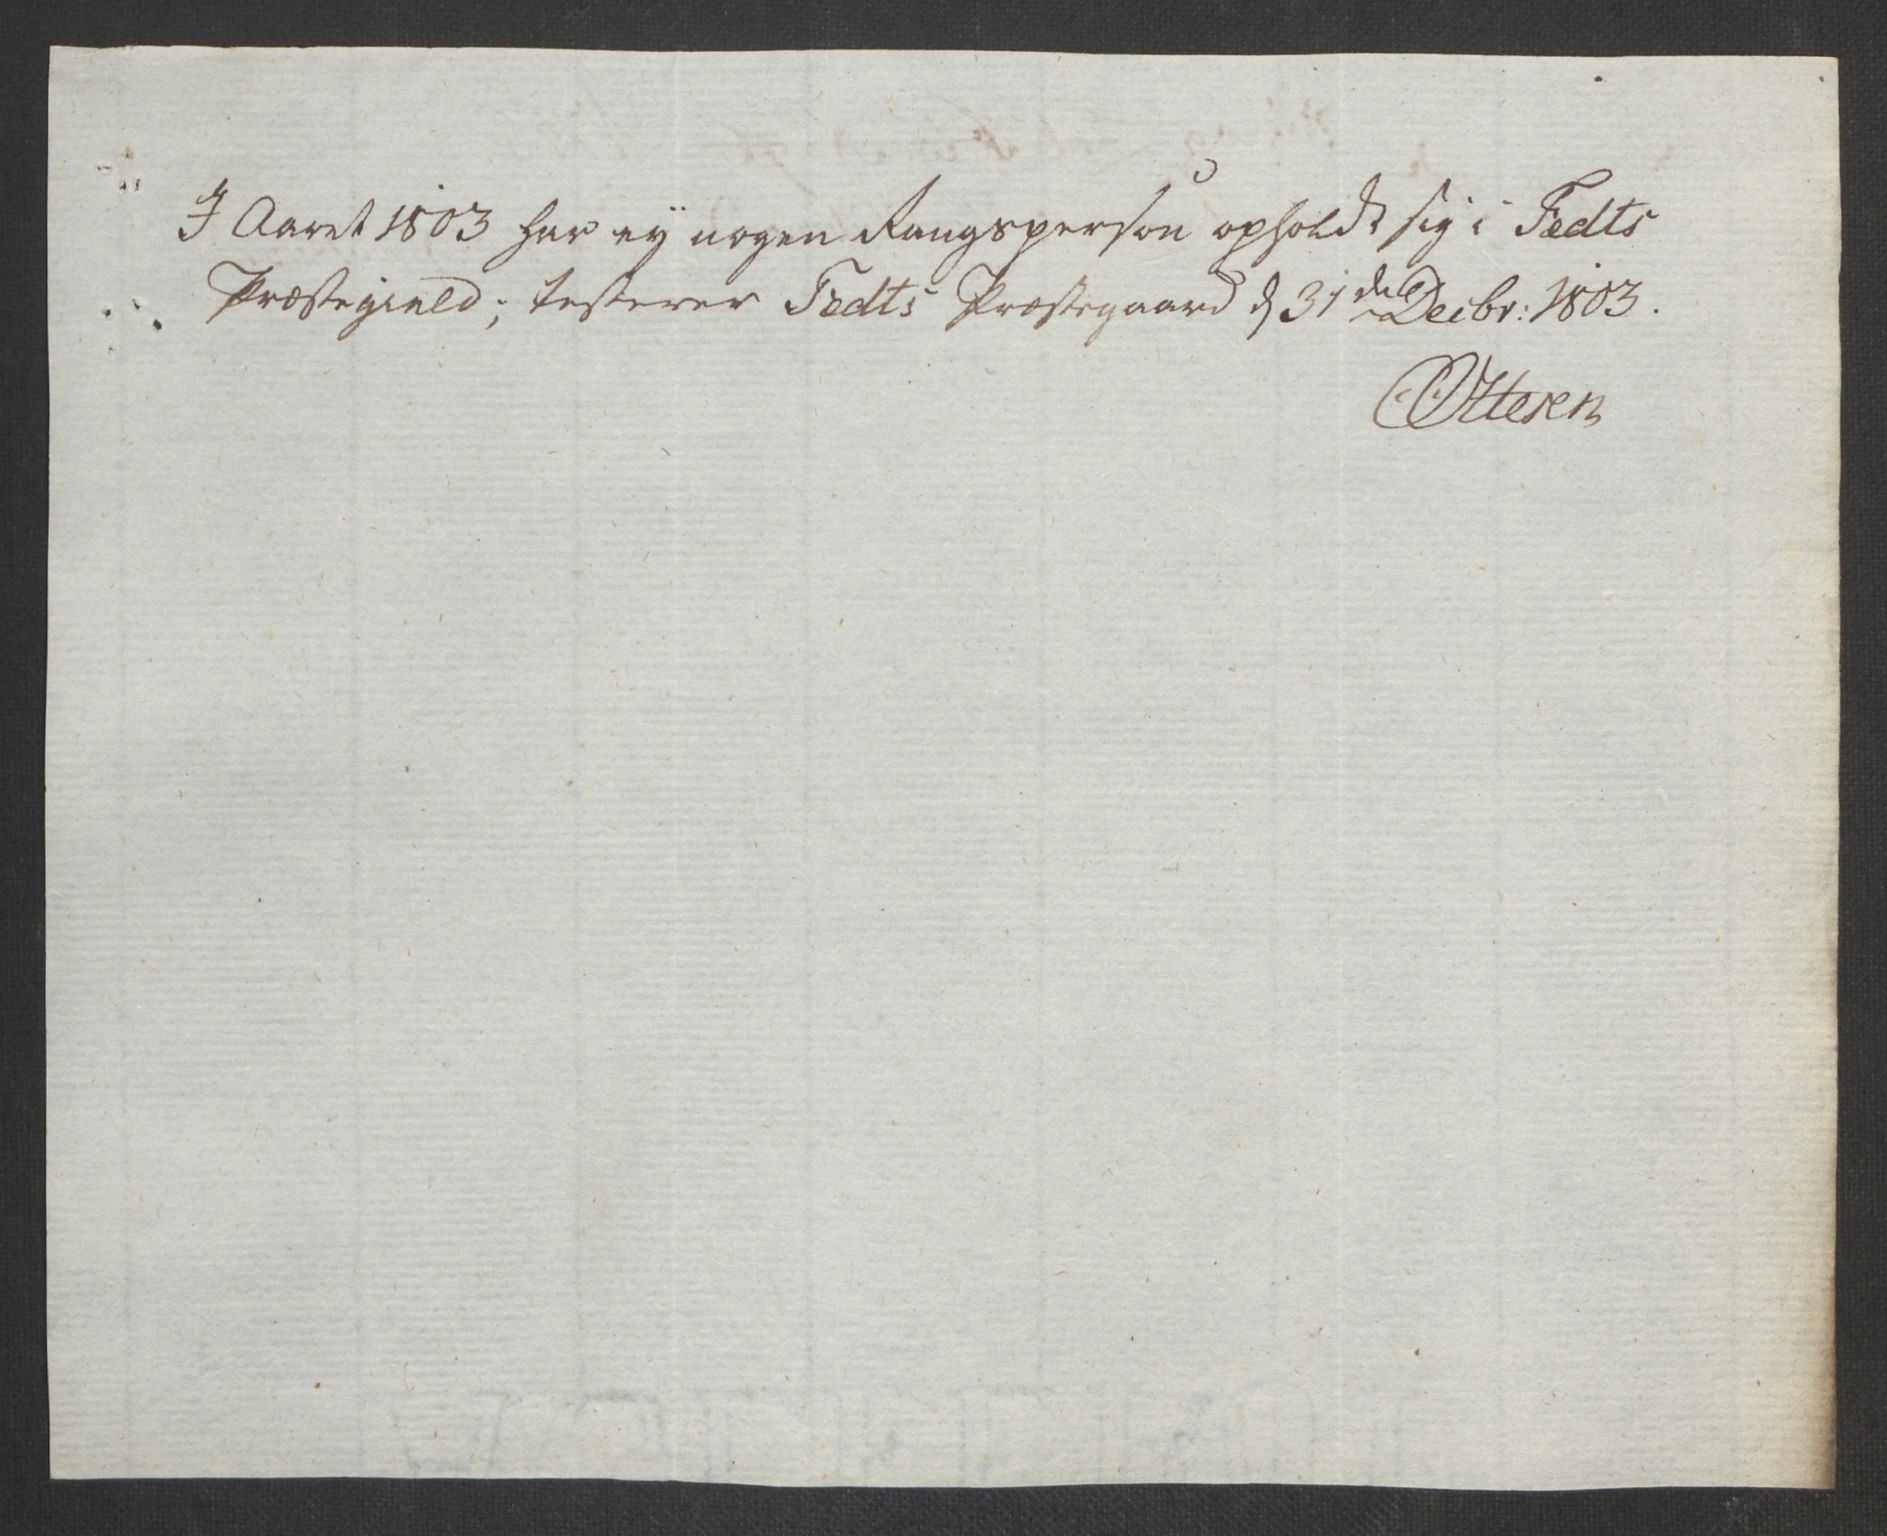 I Aaret 1803 har ey nogen Rangsperson opholdt sig i Fedts
Præstegield; testerer Fedts Præstegaard d 31 de Decbr: 1803.
Ottesen